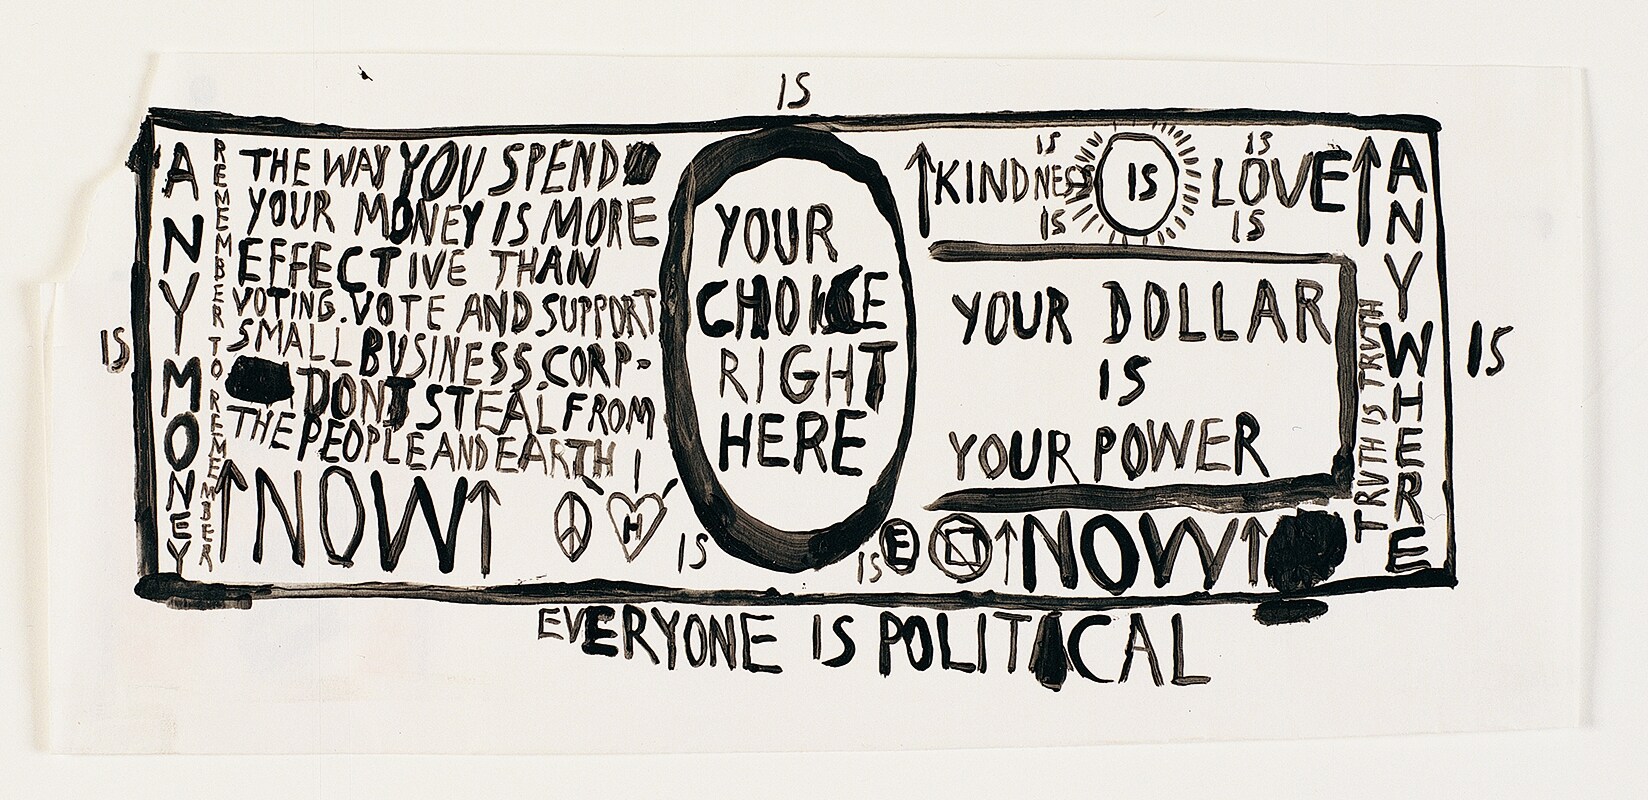 IS
ANY MONEY
REMEMBER TO REMEMBER
THE WAY YOU SPEND
YOUR MONEY IS MORE
EFFECTIVE THAN
VOTING. VOTE AND SUPPORT
SMALL BUSINESS. CORP-
DONT STEAL FROM
THE PEOPLE AND EARTH
NOW
H
IS
IS
YOUR
CHOICE
RIGHT
HERE
IS
IS
KINDNESS IS LOVE
IS
IS
YOUR DOLLAR
IS
YOUR POWER
IS
E
NOW
TRUTH IS TRUTH
ANYWHERE
IS
EVERYONE IS POLITICAL